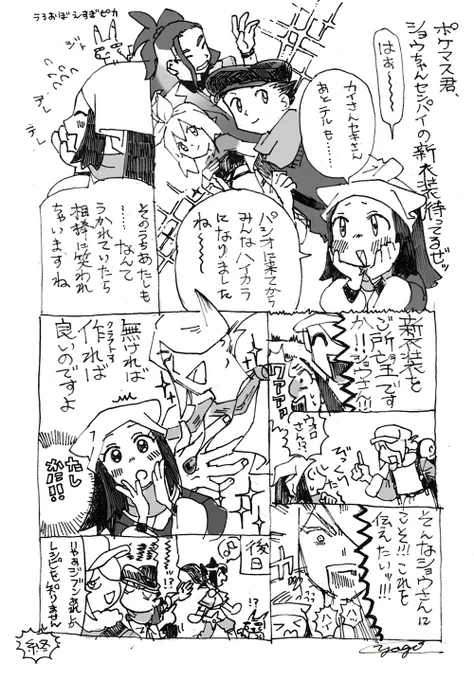 ポケマス君、
ショウちゃんセンパイの新衣装待ってるゼッ
はぁ～～～
カイさんセキさん
あとテルも……
パシオに来てから
みんなハイカラ
になりました
ね～～
そのうちあたしも
……なんて
うかれていたら
相棒に笑われ
ちゃいますね
うろおぼえすぎピカ
ジト
テレ
テレ
新衣装を
ご所望です
か!!ショウさん!!
ウォロ
さん!?
そんなショウさんに
こそ!!!これを
伝えたいッ!!!
ハイ
ハイ
無ければ
クラフトす
作れば
良いのですよ
なし
後日
!?
レシピも知りません
終
yago